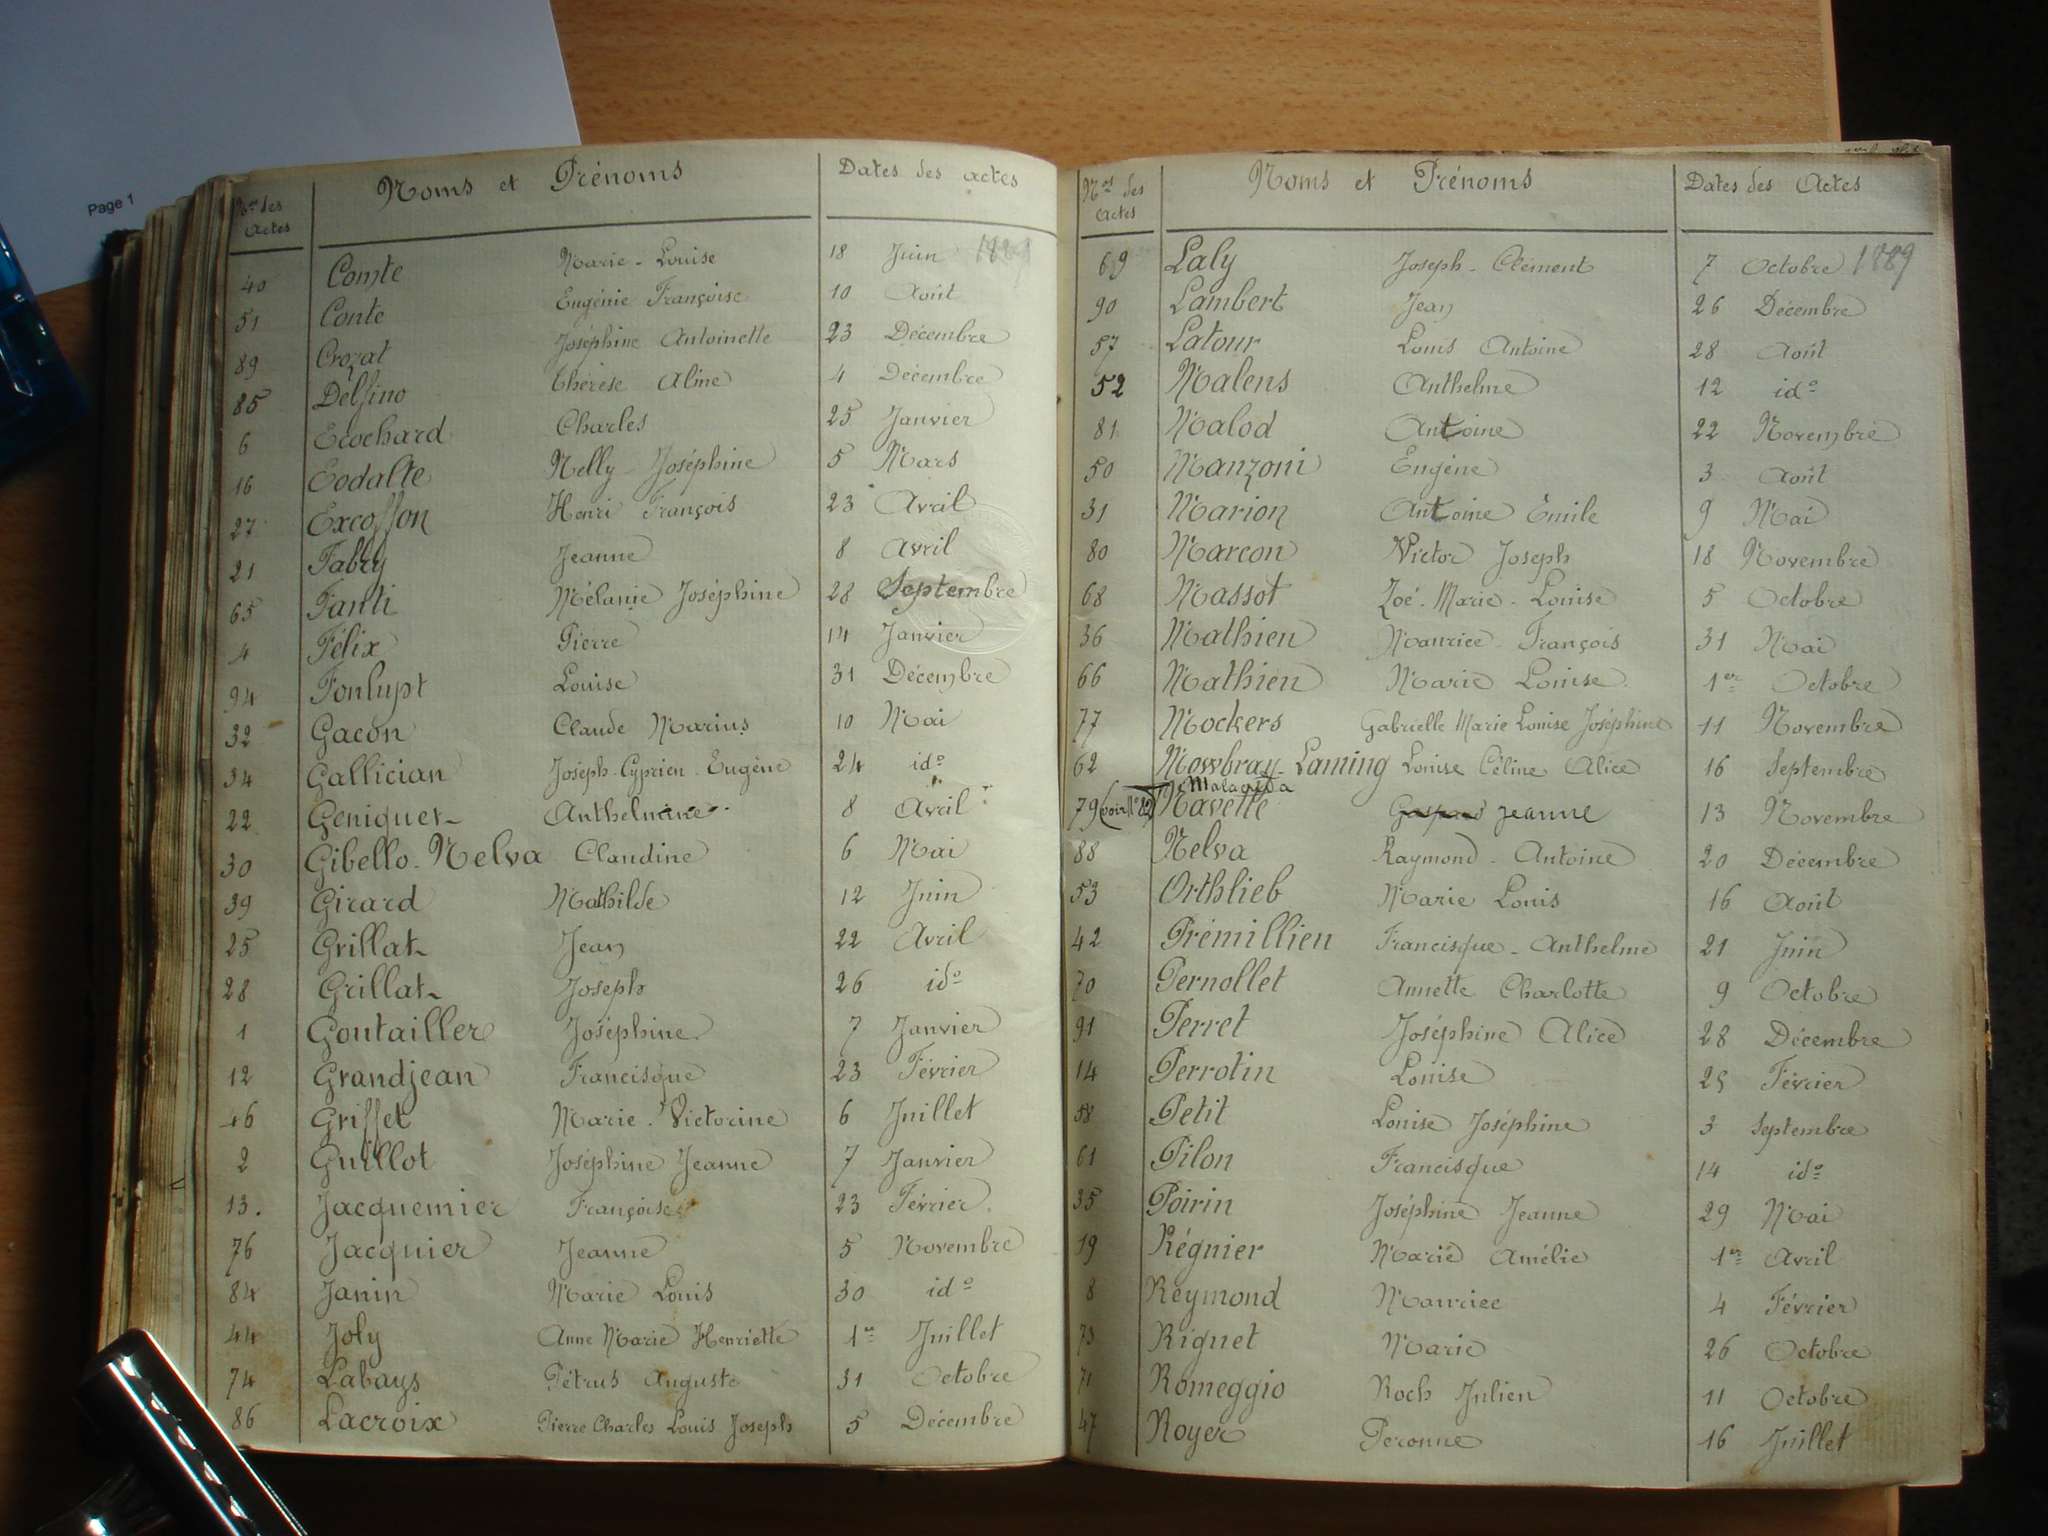 Page 1
Nos des actes Noms et Prénoms Dates des actes
40 Comte Marie-Louise 18 Juin 1889
51 Conte Eugénie Françoise 10 Août
89 Crozat Joséphine Antoinette 23 Décembre
85 Delfino Thérèse Aline 4 Décembre
6 Ecochard Charles 25 Janvier
16 Eodalte Nelly Joséphine 5 Mars
27 Excoffon Henri François 23 Avril
21 Fabry Jeanne 8 Avril
65 Fanti Mélanie Joséphine 28 Septembre
4 Félix Pierre 14 Janvier
94 Fonlupt Louise 31 Décembre
32 Gacon Claude Marius 10 Mai
34 Gallician Joseph-Cyprien-Eugène 24 ido
22 Geniquet Anthelmine 8 Avril
30 Gibello-Nelva Claudine 6 Mai
39 Girard Mathilde 12 Juin
25 Grillat Jean 22 Avril
28 Grillat Joseph 26 ido
1 Goutailler Joséphine 7 Janvier
12 Grandjean Francisque 23 Février
46 Griffet Marie-Victorine 6 Juillet
2 Guillot Joséphine Jeanne 7 Janvier
13. Jacquemier Françoise 23 Février
76 Jacquier Jeanne 5 Novembre
84 Janin Marie Louis 30 ido
44 Joly Anne Marie Henriette 1er Juillet
74 Labays Pétrus Auguste 31 Octobre
86 Lacroix Pierre Charles Louis Joseph 5 Décembre
Nos des actes Noms et Prénoms Dates des Actes
69 Laly Joseph-Clément 7 Octobre 1889
90 Lambert Jean 26 Décembre
57 Latour Louis Antoine 28 Août
52 Malens Anthelme 12 ido
81 Malod Antoine 22 Novembre
50 Manzoni Eugène 3 Août
31 Marion Antoine Émile 9 Mai
80 Marcon Victor Joseph 18 Novembre
68 Massot Zoé-Marie-Louise 5 Octobre
36 Mathieu Maurice-François 31 Mai
66 Mathieu Marie Louise 1er Octobre
77 Mockers Gabrielle Marie Louise Joséphine 11 Novembre
62 Mowbray-Laming Louise Céline Alice 16 Septembre
Malagutta
79 (voir No 12) Navette Gaspard Jeanne 13 Novembre
88 Nelva Raymond-Antoine 20 Décembre
53 Orthlieb Marie Louis 16 Août
42 Prémillien Francisque-Anthelme 21 Juin
70 Pernollet Annette Charlotte 9 Octobre
91 Perret Joséphine Alice 28 Décembre
14 Perrotin Louise 25 Février
58 Petit Louise Joséphine 3 Septembre
61 Pilon Francisque 14 ido
35 Poirin Joséphine Jeanne 29 Mai
19 Régnier Marie Amélie 1er Avril
8 Reymond Maurice 4 Février
73 Riguet Marie 26 Octobre
71 Romeggio Roch Julien 11 Octobre
47 Royer Peronne 16 Juillet